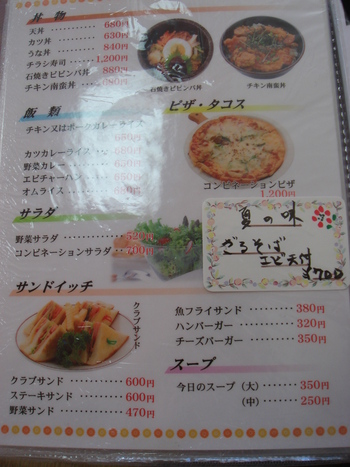 丼 物
天丼 ………… 680円
カツ丼 ………… 630円
うな丼 ………… 840円
チラシ寿司 …… 1,200円
石焼きビビンバ丼 …… 880円
チキン南蛮丼 ……… 680円
石焼きビビンバ丼
チキン南蛮丼
飯 類
チキン又はポークカレーライス
カツカレーライス
野菜カレー
エビチャーハン …… 850円
オムライス
ピザ・タコス
コンビネーションピザ
1,200円
サラダ
野菜サラダ ……… 520円
コンビネーションサラダ … 700円
夏の味
ざるそば
エビ天付
¥700
サンドイッチ
クラブサンド
クラブサンド ……… 600円
ステーキサンド ……… 600円
野菜サンド ……… 470円
魚フライサンド ……… 380円
ハンバーガー ……… 320円
チーズバーガー ……… 350円
スープ
今日のスープ (大) … 350円
(中) … 250円